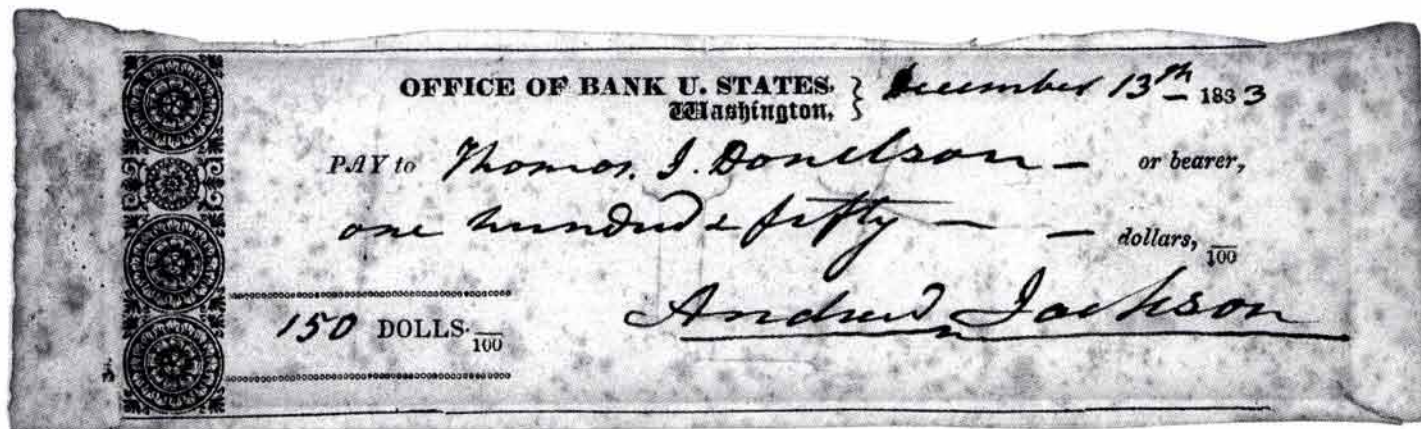 OFFICE OF BANK U. STATES. } December 13th 1833
Washington,
PAY to Thomas. J. Donelson — or bearer,
one hundred & fifty — — dollars, /100
150 DOLLS. /100
Andrew Jackson